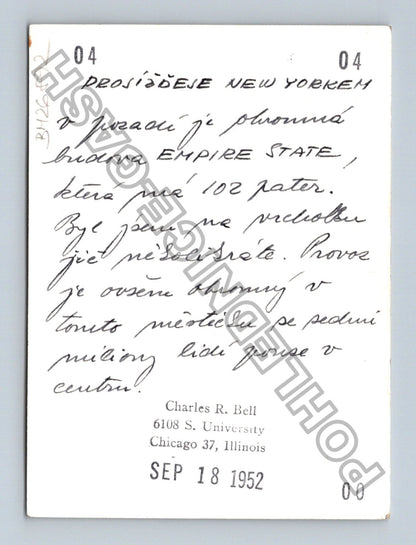 04 04
BH26
PROSÍŠĎESE NEW YORKEM
v pozadí je ohromná
budova EMPIRE STATE,
která má 102 pater.
Byl jsem na vrcholku
již několikráte. Provoz
je ovšem ohromný v
tomto městečku se sedmi
miliony lidí pouze v
centru.
Charles R. Bell
6108 S. University
Chicago 37, Illinois
SEP 18 1952
00
POHLEDNICE-CVASH